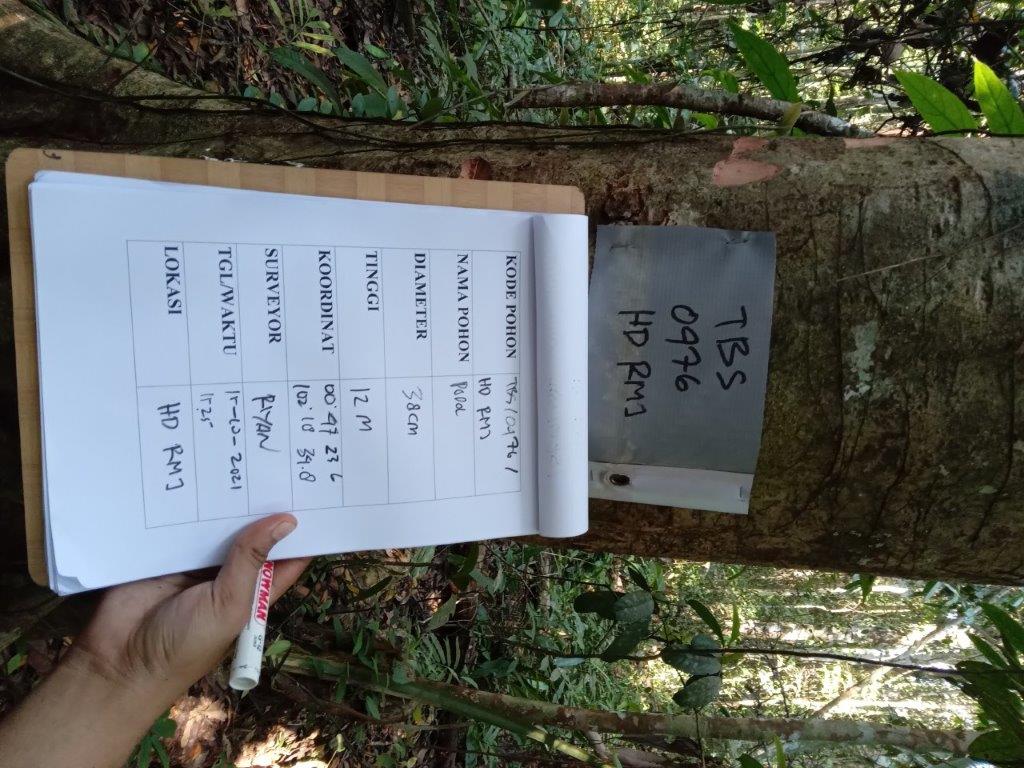 TBS
0976
HD RMJ
KODE POHON TBS/0976/
HD RMJ
NAMA POHON
DIAMETER 38cm
TINGGI 12 M
KOORDINAT 00°47 23 6
102°18 39.8
SURVEYOR RIYAN
TGL/WAKTU 15-10-2021
15.25
LOKASI HD RMJ
NOWMAN